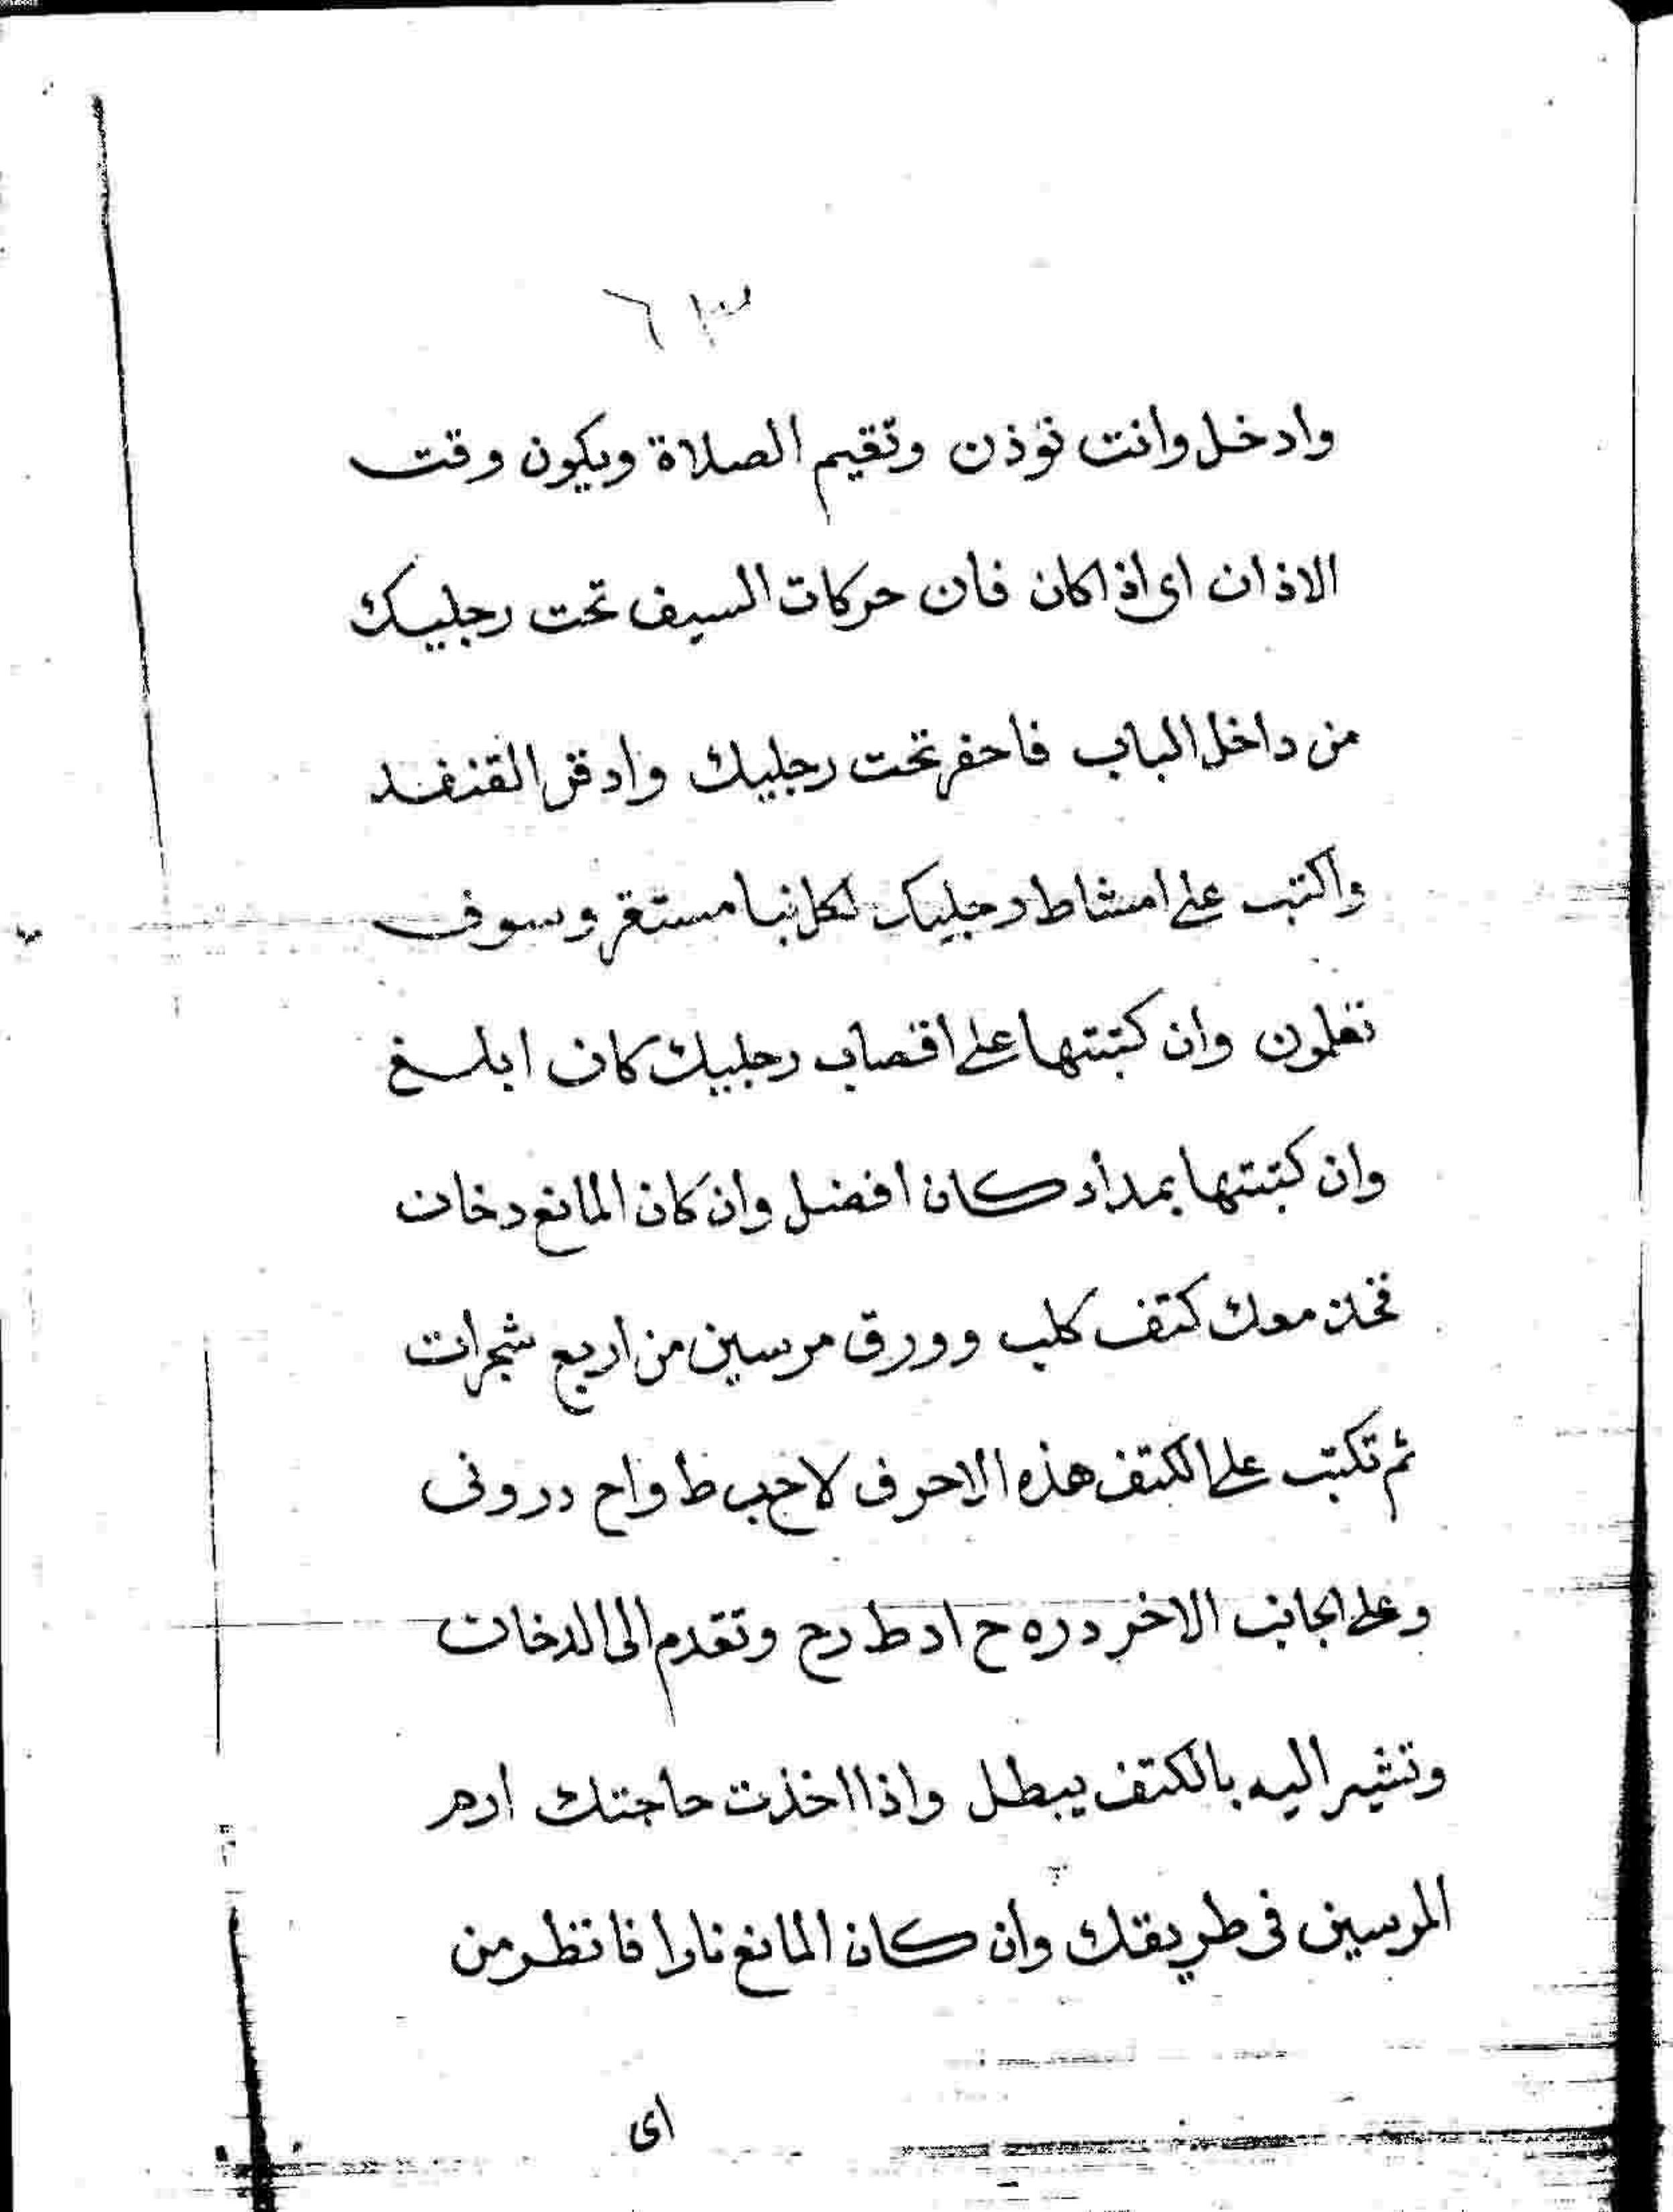 وادخل وانت توذن وتقيم الصلاة ويكون وقت
الاذان اى اذا كان فان حركات السيف تحت رجليك
من داخل الباب فاحفر تحت رجليك وادفن القنفد
واكتب على امشاط رجليك لكل نبا مستقر وسوف
تعلمون وان كتبتها على اقصاب رجليك كان ابلغ
وان كتبتها بمداد كان افضل وان كان المانع دخان
فخذ معك كتف كلب وورق مرسين من اربع شجرات
ثم تكتب على الكتف هذه الاحرف
وعلى الجانب الاخر دره ح اد ط رح وتقدم الى الدخان
وتشير اليه بالكتف يبطل واذا اخذت حاجتك ارم
المرسين فى طريقك وان كان المانع نارا فانظر من
اى